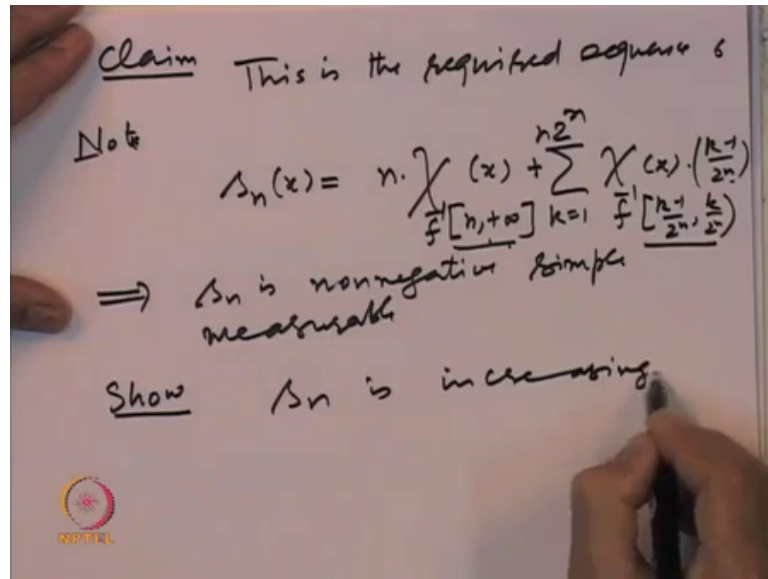 Claim This is the required sequence
Note
sn(x) = n·χ_{f⁻¹[n,+∞]}(x) + Σ_{k=1}^{n2ⁿ} χ_{f⁻¹[(k-1)/2ⁿ, k/2ⁿ)}(x)·((k-1)/2ⁿ)
⟹ sn is nonnegative simple
measurable
Show sn is increasing
NPTEL